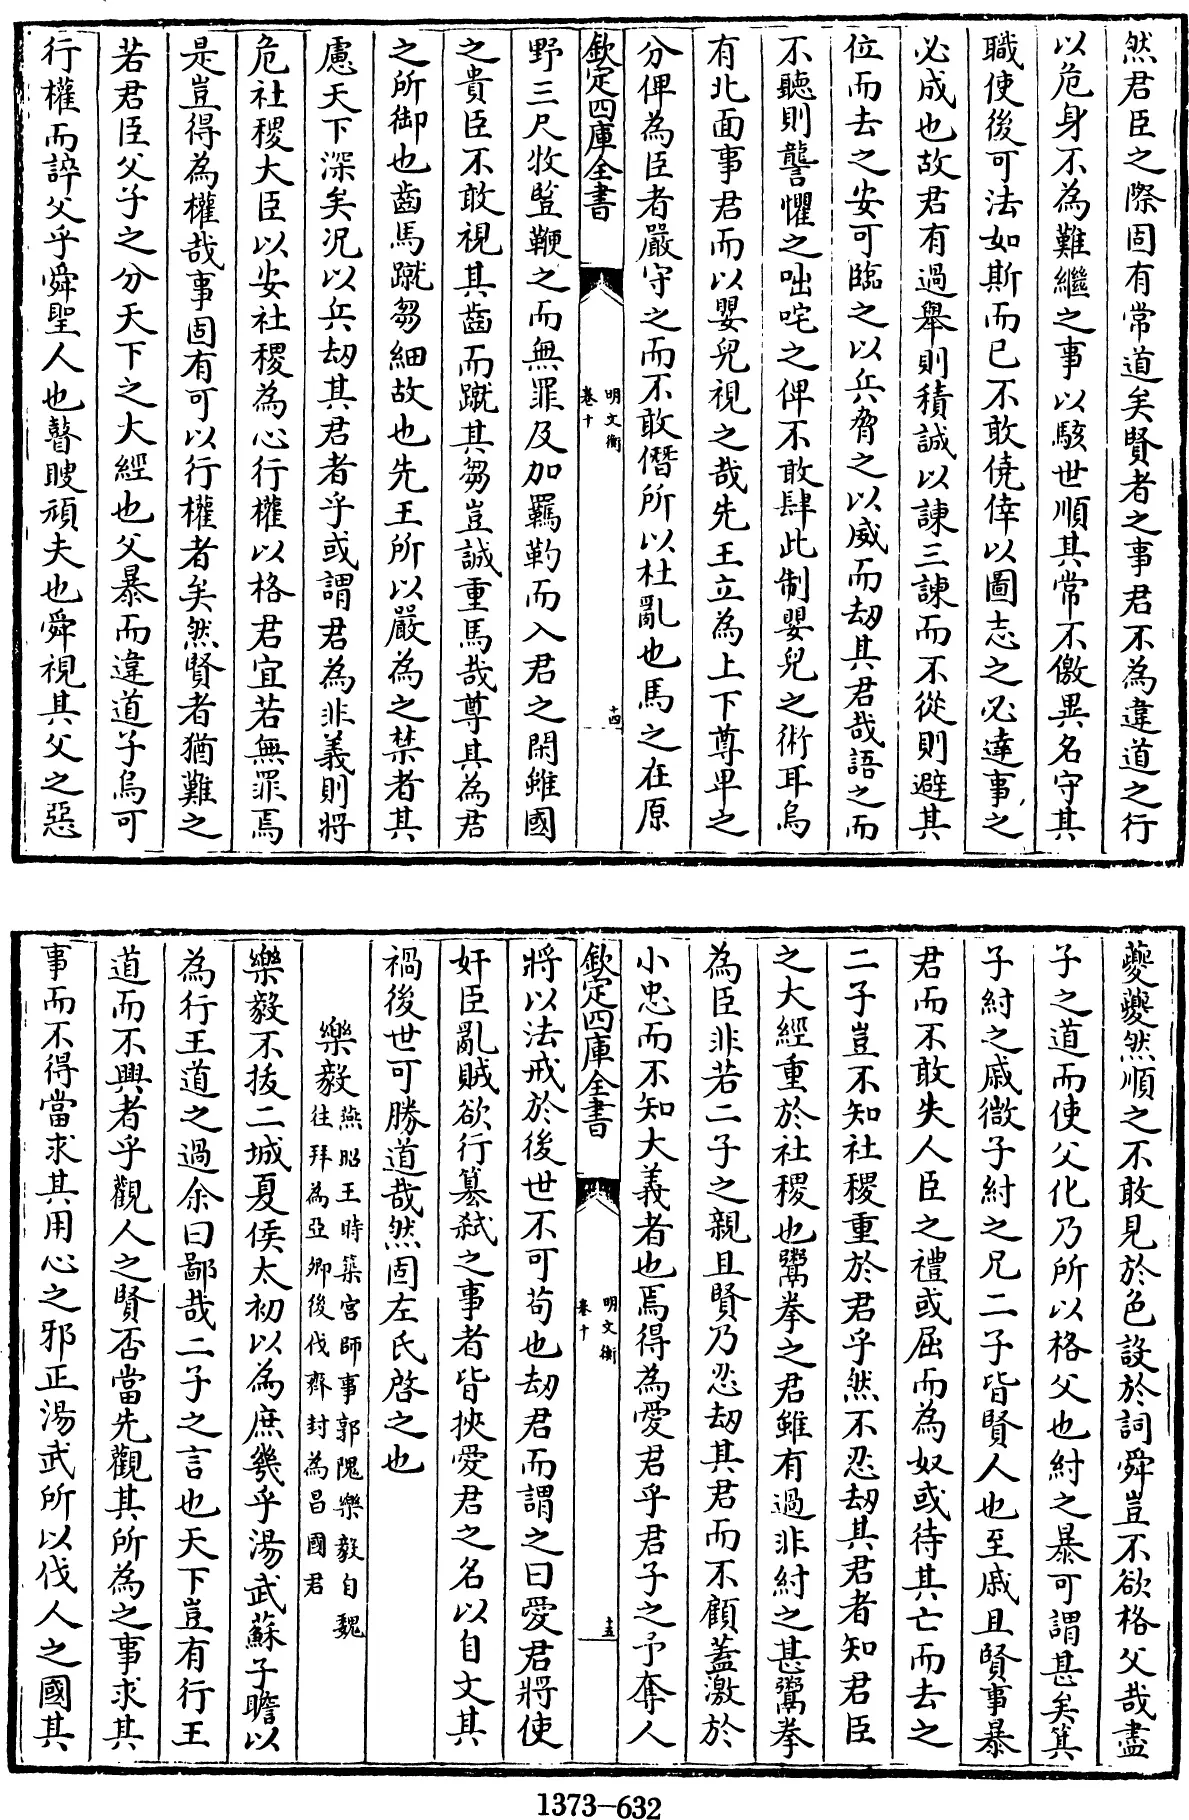 然君臣之際固有常道矣賢者之事君不為違道之行
以危身不為難繼之事以駭世順其常不儌異名守其
職使後可法如斯而已不敢僥倖以圖志之必達事之
必成也故君有過舉則積誠以諫三諫而不從則避其
位而去之安可臨之以兵脅之以威而刼其君哉語之而
不聽則讋懼之咄咤之俾不敢肆此制嬰兒之術耳烏
有北面事君而以嬰兒視之哉先王立為上下尊卑之
分俾為臣者嚴守之而不敢僭所以杜亂也馬之在原
欽定四庫全書
明文衡
卷十
十四
野三尺牧豎鞭之而無罪及加羈靮而入君之閑雖國
之貴臣不敢視其齒而蹴其芻豈誠重馬哉尊其為君
之所御也齒馬蹴芻細故也先王所以嚴為之禁者其
慮天下深矣况以兵刼其君者乎或謂君為非義則將
危社稷大臣以安社稷為心行權以格君宜若無罪焉
是豈得為權哉事固有可以行權者矣然賢者猶難之
若君臣父子之分天下之大經也父暴而違道子烏可
行權而誶父乎舜聖人也瞽瞍頑夫也舜視其父之惡
夔夔然順之不敢見於色設於詞舜豈不欲格父哉盡
子之道而使父化乃所以格父也紂之暴可謂甚矣箕
子紂之戚微子紂之兄二子皆賢人也至戚且賢事暴
君而不敢失人臣之禮或屈而為奴或待其亡而去之
二子豈不知社稷重於君乎然不忍刼其君者知君臣
之大經重於社稷也鬻拳之君雖有過非紂之甚鬻拳
為臣非若二子之親且賢乃忍刼其君而不顧蓋激於
小忠而不知大義者也焉得為愛君乎君子之予奪人
欽定四庫全書
明文衡
卷十
十五
將以法戒於後世不可茍也刼君而謂之曰愛君將使
奸臣亂賊欲行簒弑之事者皆挾愛君之名以自文其
禍後世可勝道哉然固左氏啓之也
樂毅燕昭王時築宮師事郭隗樂毅自魏
往拜為亞卿後伐齊封為昌國君
樂毅不拔二城夏侯太初以為庶幾乎湯武蘇子瞻以
為行王道之過余曰鄙哉二子之言也天下豈有行王
道而不興者乎觀人之賢否當先觀其所為之事求其
事而不得當求其用心之邪正湯武所以伐人之國其
1373-632